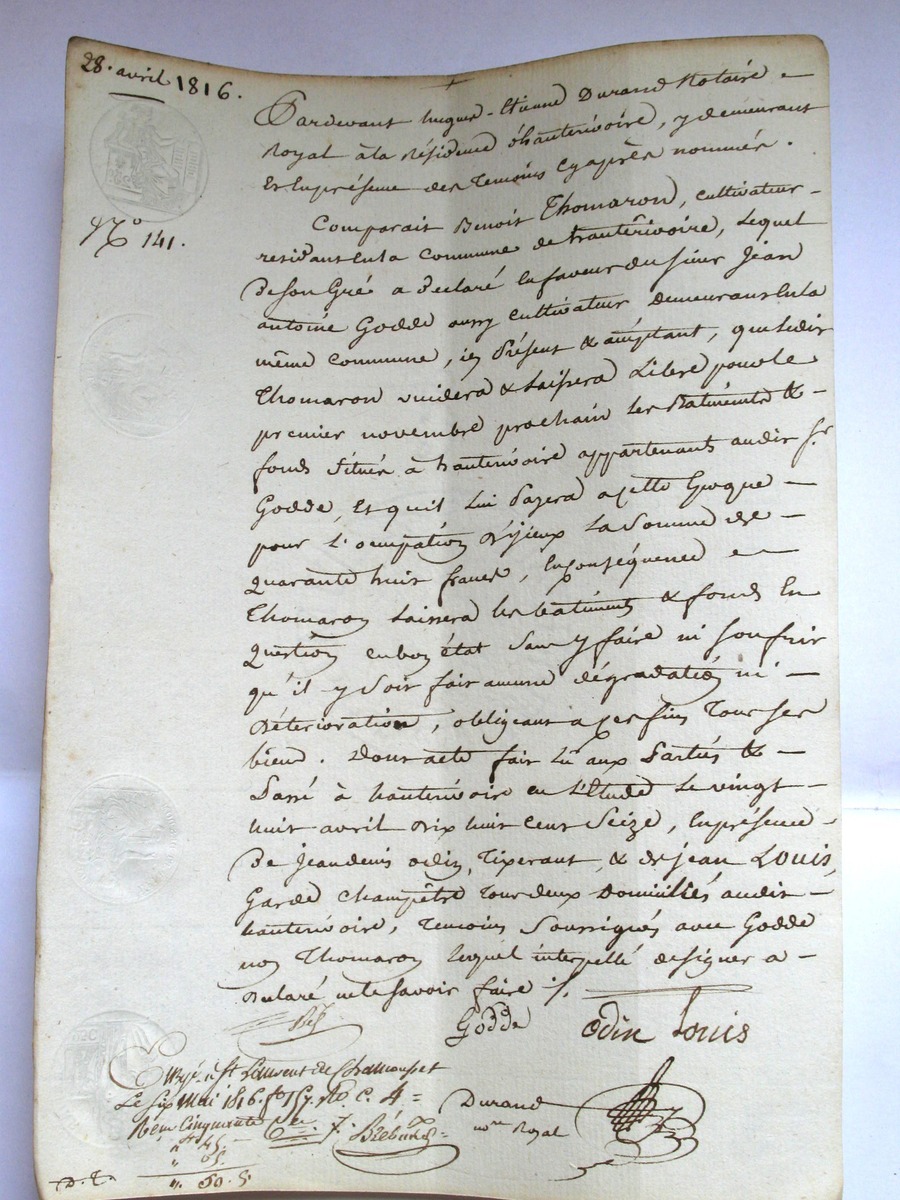 28. avril 1816.
Pardevant hugues-Etienne Durand Notaire
Royal à la Résidence d'hauterivoire, y demeurant
Et En présence des Temoins Cy après nommés.
No 141.
Comparait Benoit Thomaron, cultivateur
residant En la Commune de hauterivoire, Lequel
De son Gré a déclaré En faveur du sieur Jean
antoine Godde aussy cultivateur demeurant En la
même commune, icy Présent & acceptant, que Ledit
Thomaron vuidera & Laissera Libere pour le
premier novembre prochain Les Batiments &
fonds Situés à hauterivoire appartenants audit Sr
Godde, Et qu'il Lui Payera a cette Epoque
pour L'occupation D'iceux La Somme de
quarante huit francs, En Conséquence
Thomaron Laissera les batiments & fonds En
Question en bon état Sans y faire ni Souffrir
qu'il y Soit fait aucune dégradation ni
Détérioration, obligeant a ces fins Tous ses
biens. Dont acte fait Lu aux Parties &
Passé à hauterivoire en L'Etude Le vingt
huit avril dix huit Cent Seize, En présence
De Jean denis odin, Tixerant, & de jean Louis,
Garde Champêtre Tous deux Domiciliés audit
hauterivoire, Temoins Soussignés avec Godde
non Thomaron Lequel interpellé de signer a
Déclaré ne le Savoir faire ./.
Godde odin Louis
Enregé à St Laurent de Chamousset
Le Six Mai 1816. fo 157. Ro C. 4
Durand
nore Royal